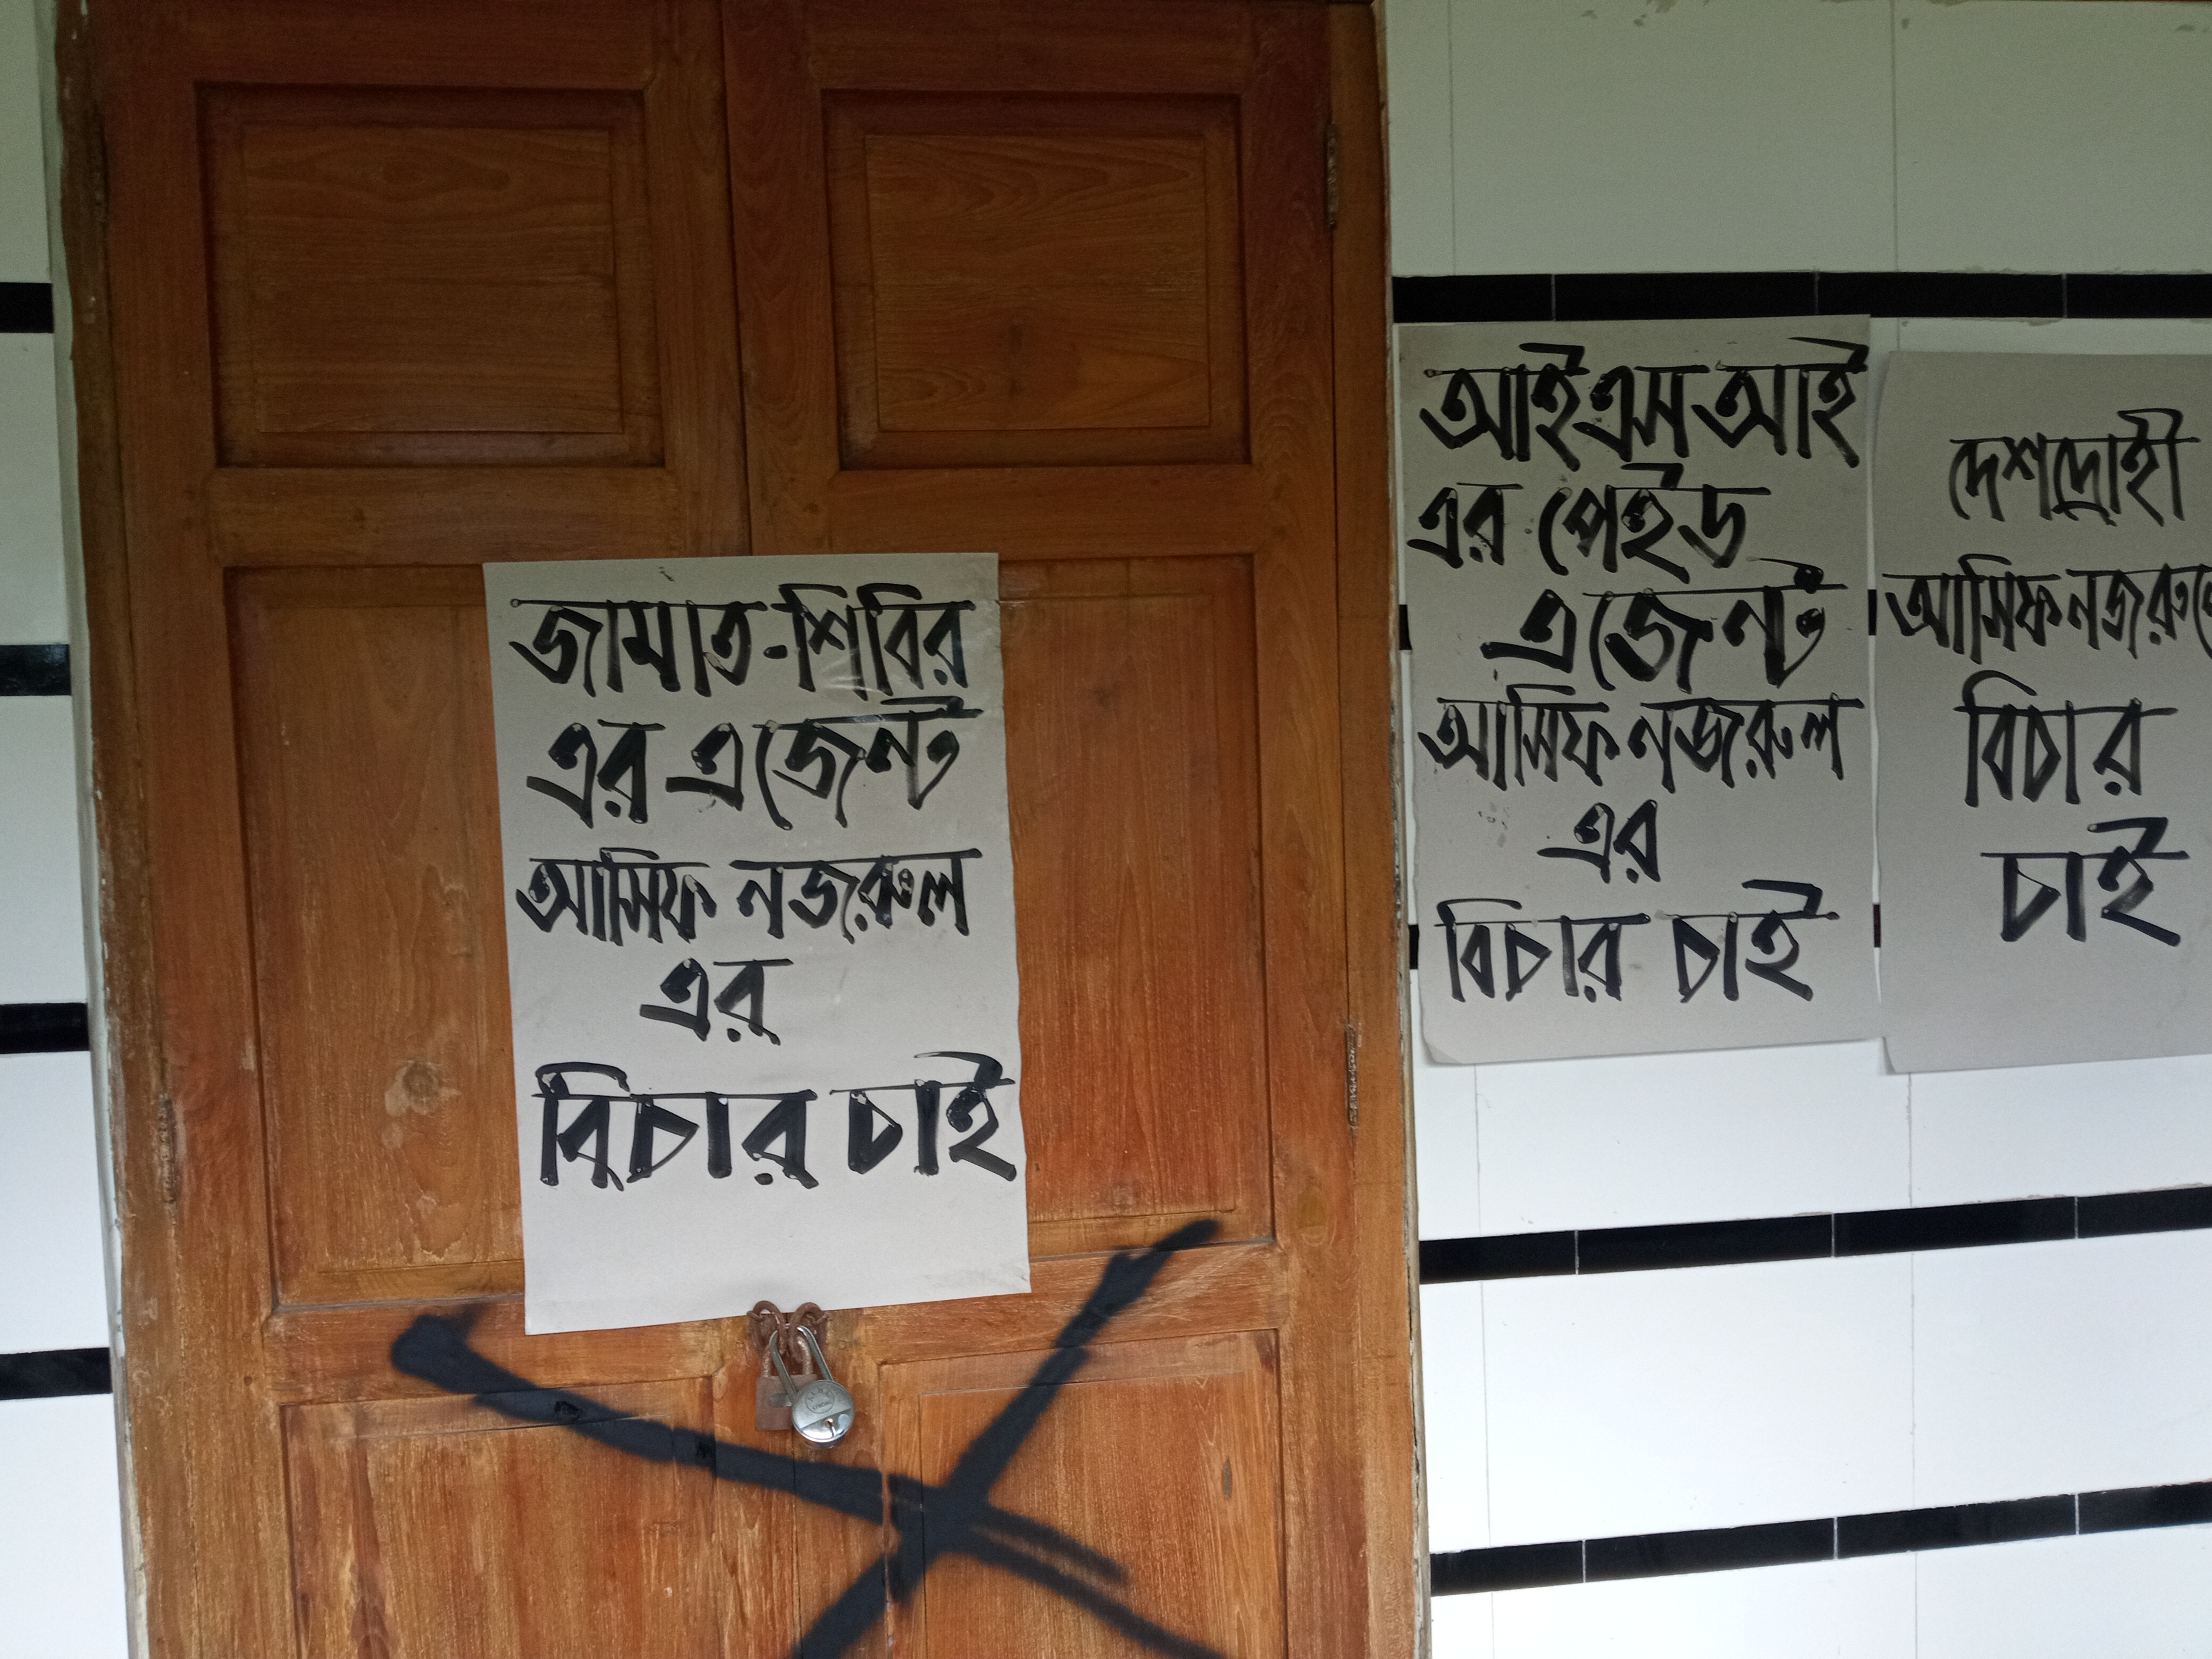 জামাত-শিবির
এর এজেন্ট
আসিফ নজরুল
এর
বিচার চাই
আইএস আই
এর পেইড
এজেন্ট
আসিফ নজরুল
এর
বিচার চাই
দেশদ্রোহী
আসিফ নজরুলে
বিচার
চাই